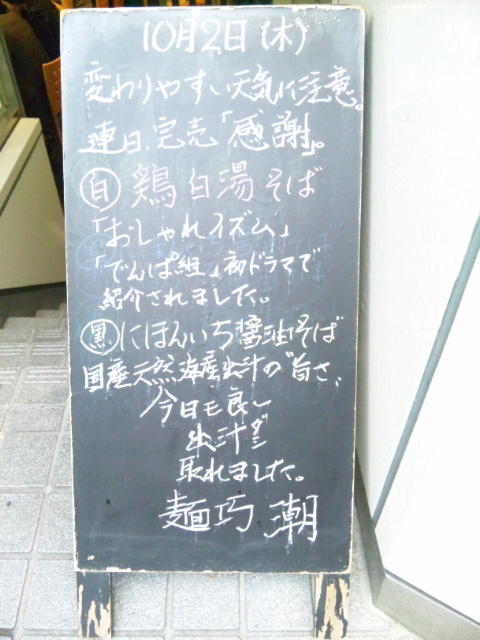 10月2日(木)
変わりやすい天気に注意。
連日、完売「感謝」。
白 鶏白湯そば
「おしゃれイズム」
「でんぱ組」初ドラマで
紹介されました。
黒 にほんいち醤油そば
国産天然海産出汁の〝旨さ〟
今日も良い
出汁ダシ
取れました。
麺巧 潮